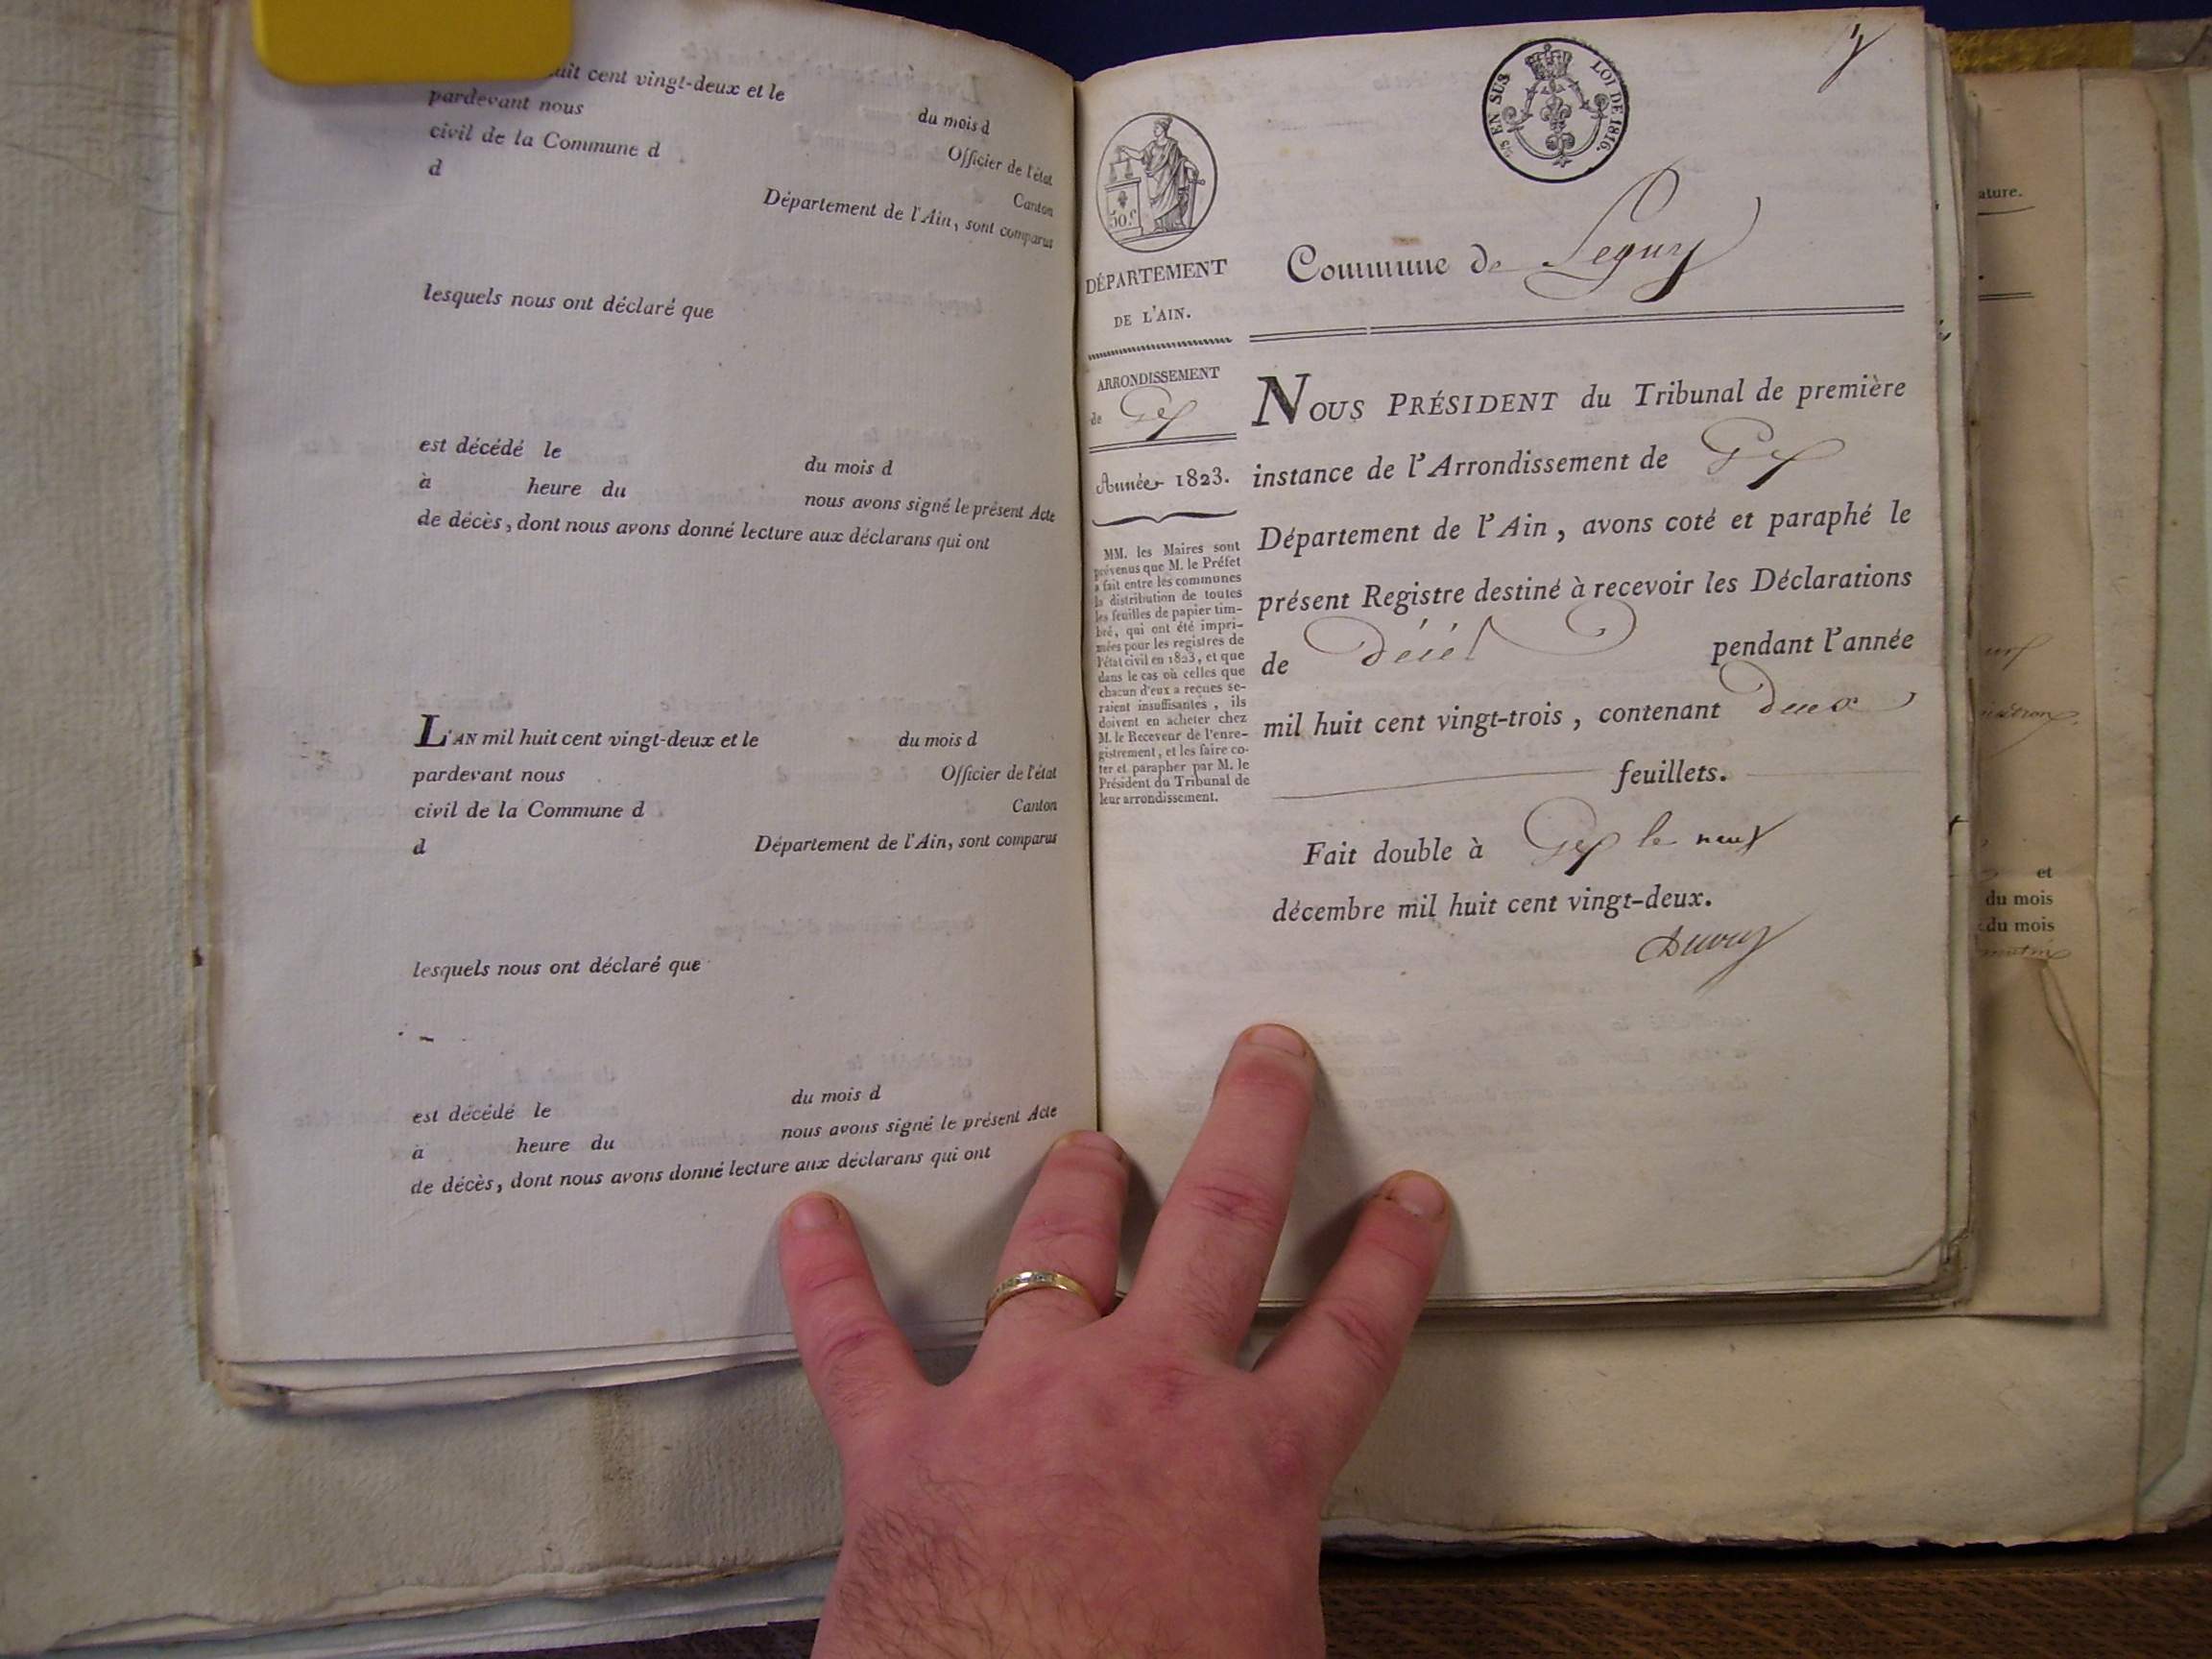 huit cent vingt-deux et le du mois d
pardevant nous Officier de l'état
civil de la Commune d Canton
d Département de l'Ain, sont comparus
lesquels nous ont déclaré que
est décédé le du mois d
à heure du nous avons signé le présent Acte
de décès, dont nous avons donné lecture aux déclarans qui ont
L'AN mil huit cent vingt-deux et le du mois d
pardevant nous Officier de l'état
civil de la Commune d Canton
d Département de l'Ain, sont comparus
lesquels nous ont déclaré que
est décédé le du mois d
à heure du nous avons signé le présent Acte
de décès, dont nous avons donné lecture aux déclarans qui ont
EN SUS LOI DE 1816.
50 c
DÉPARTEMENT
DE L'AIN.
ARRONDISSEMENT
de Gex
Année 1823.
MM. les Maires sont
prévenus que M. le Préfet
a fait entre les communes
la distribution de toutes
les feuilles de papier tim-
bré, qui ont été impri-
mées pour les registres de
l'état civil en 1823, et que
dans le cas où celles que
chacun d'eux a reçues se-
raient insuffisantes, ils
doivent en acheter chez
M. le Receveur de l'enre-
gistrement, et les faire co-
ter et parapher par M. le
Président du Tribunal de
leur arrondissement.
Commune de Peguy
NOUS PRÉSIDENT du Tribunal de première
instance de l'Arrondissement de Gex
Département de l'Ain, avons coté et paraphé le
présent Registre destiné à recevoir les Déclarations
de Décès pendant l'année
mil huit cent vingt-trois, contenant Deux
feuillets.
Fait double à Gex le neuf
décembre mil huit cent vingt-deux.
ature.
et
du mois
du mois